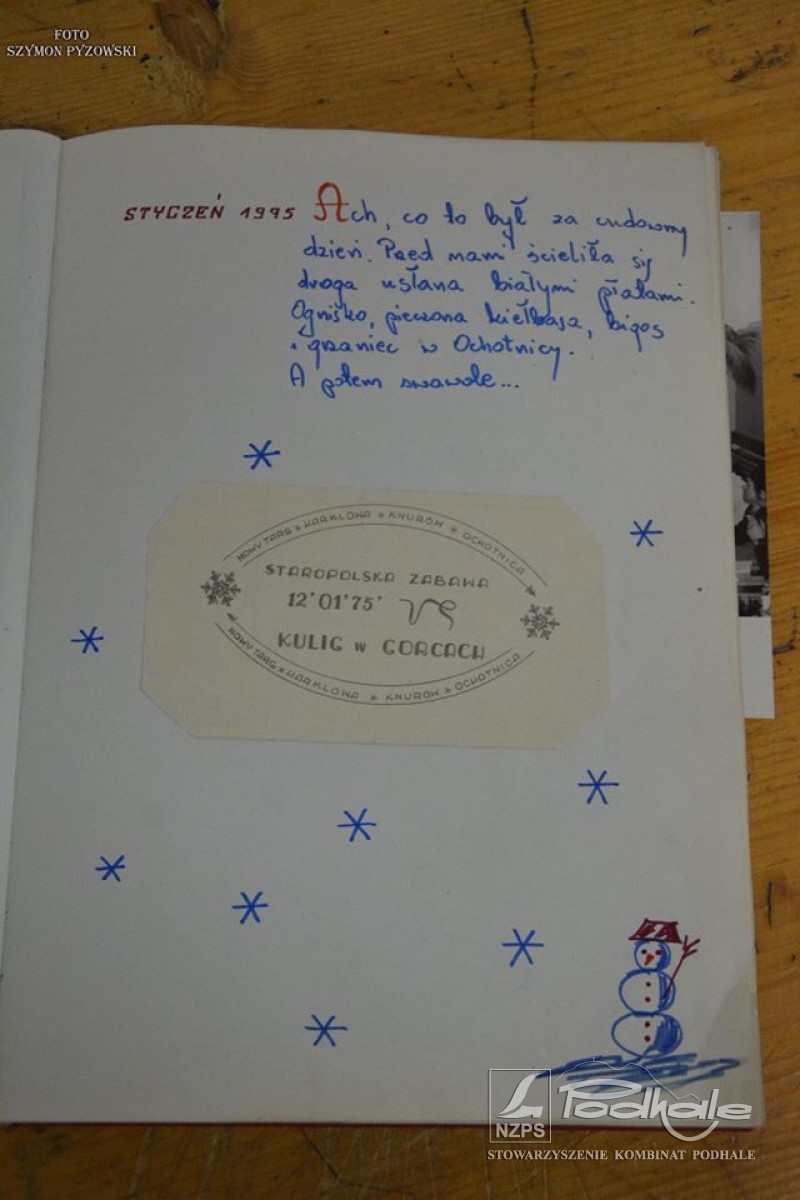 FOTO
SZYMON PYZOWSKI
STYCZEŃ 1995 Ach, co to był za cudowny
dzień. Przed nami ścieliła się
droga usłana białymi płatami.
Ognisko, pieczona kiełbasa, bigos
i grzaniec w Ochotnicy.
A potem swawole...
NOWY TARG * HARKLOWA * KNURÓW * OCHOTNICA
STAROPOLSKA ZABAWA
12'01'75'
KULIG W GORCACH
NOWY TARG * HARKLOWA * KNURÓW * OCHOTNICA
NZPS Podhale
STOWARZYSZENIE KOMBINAT PODHALE